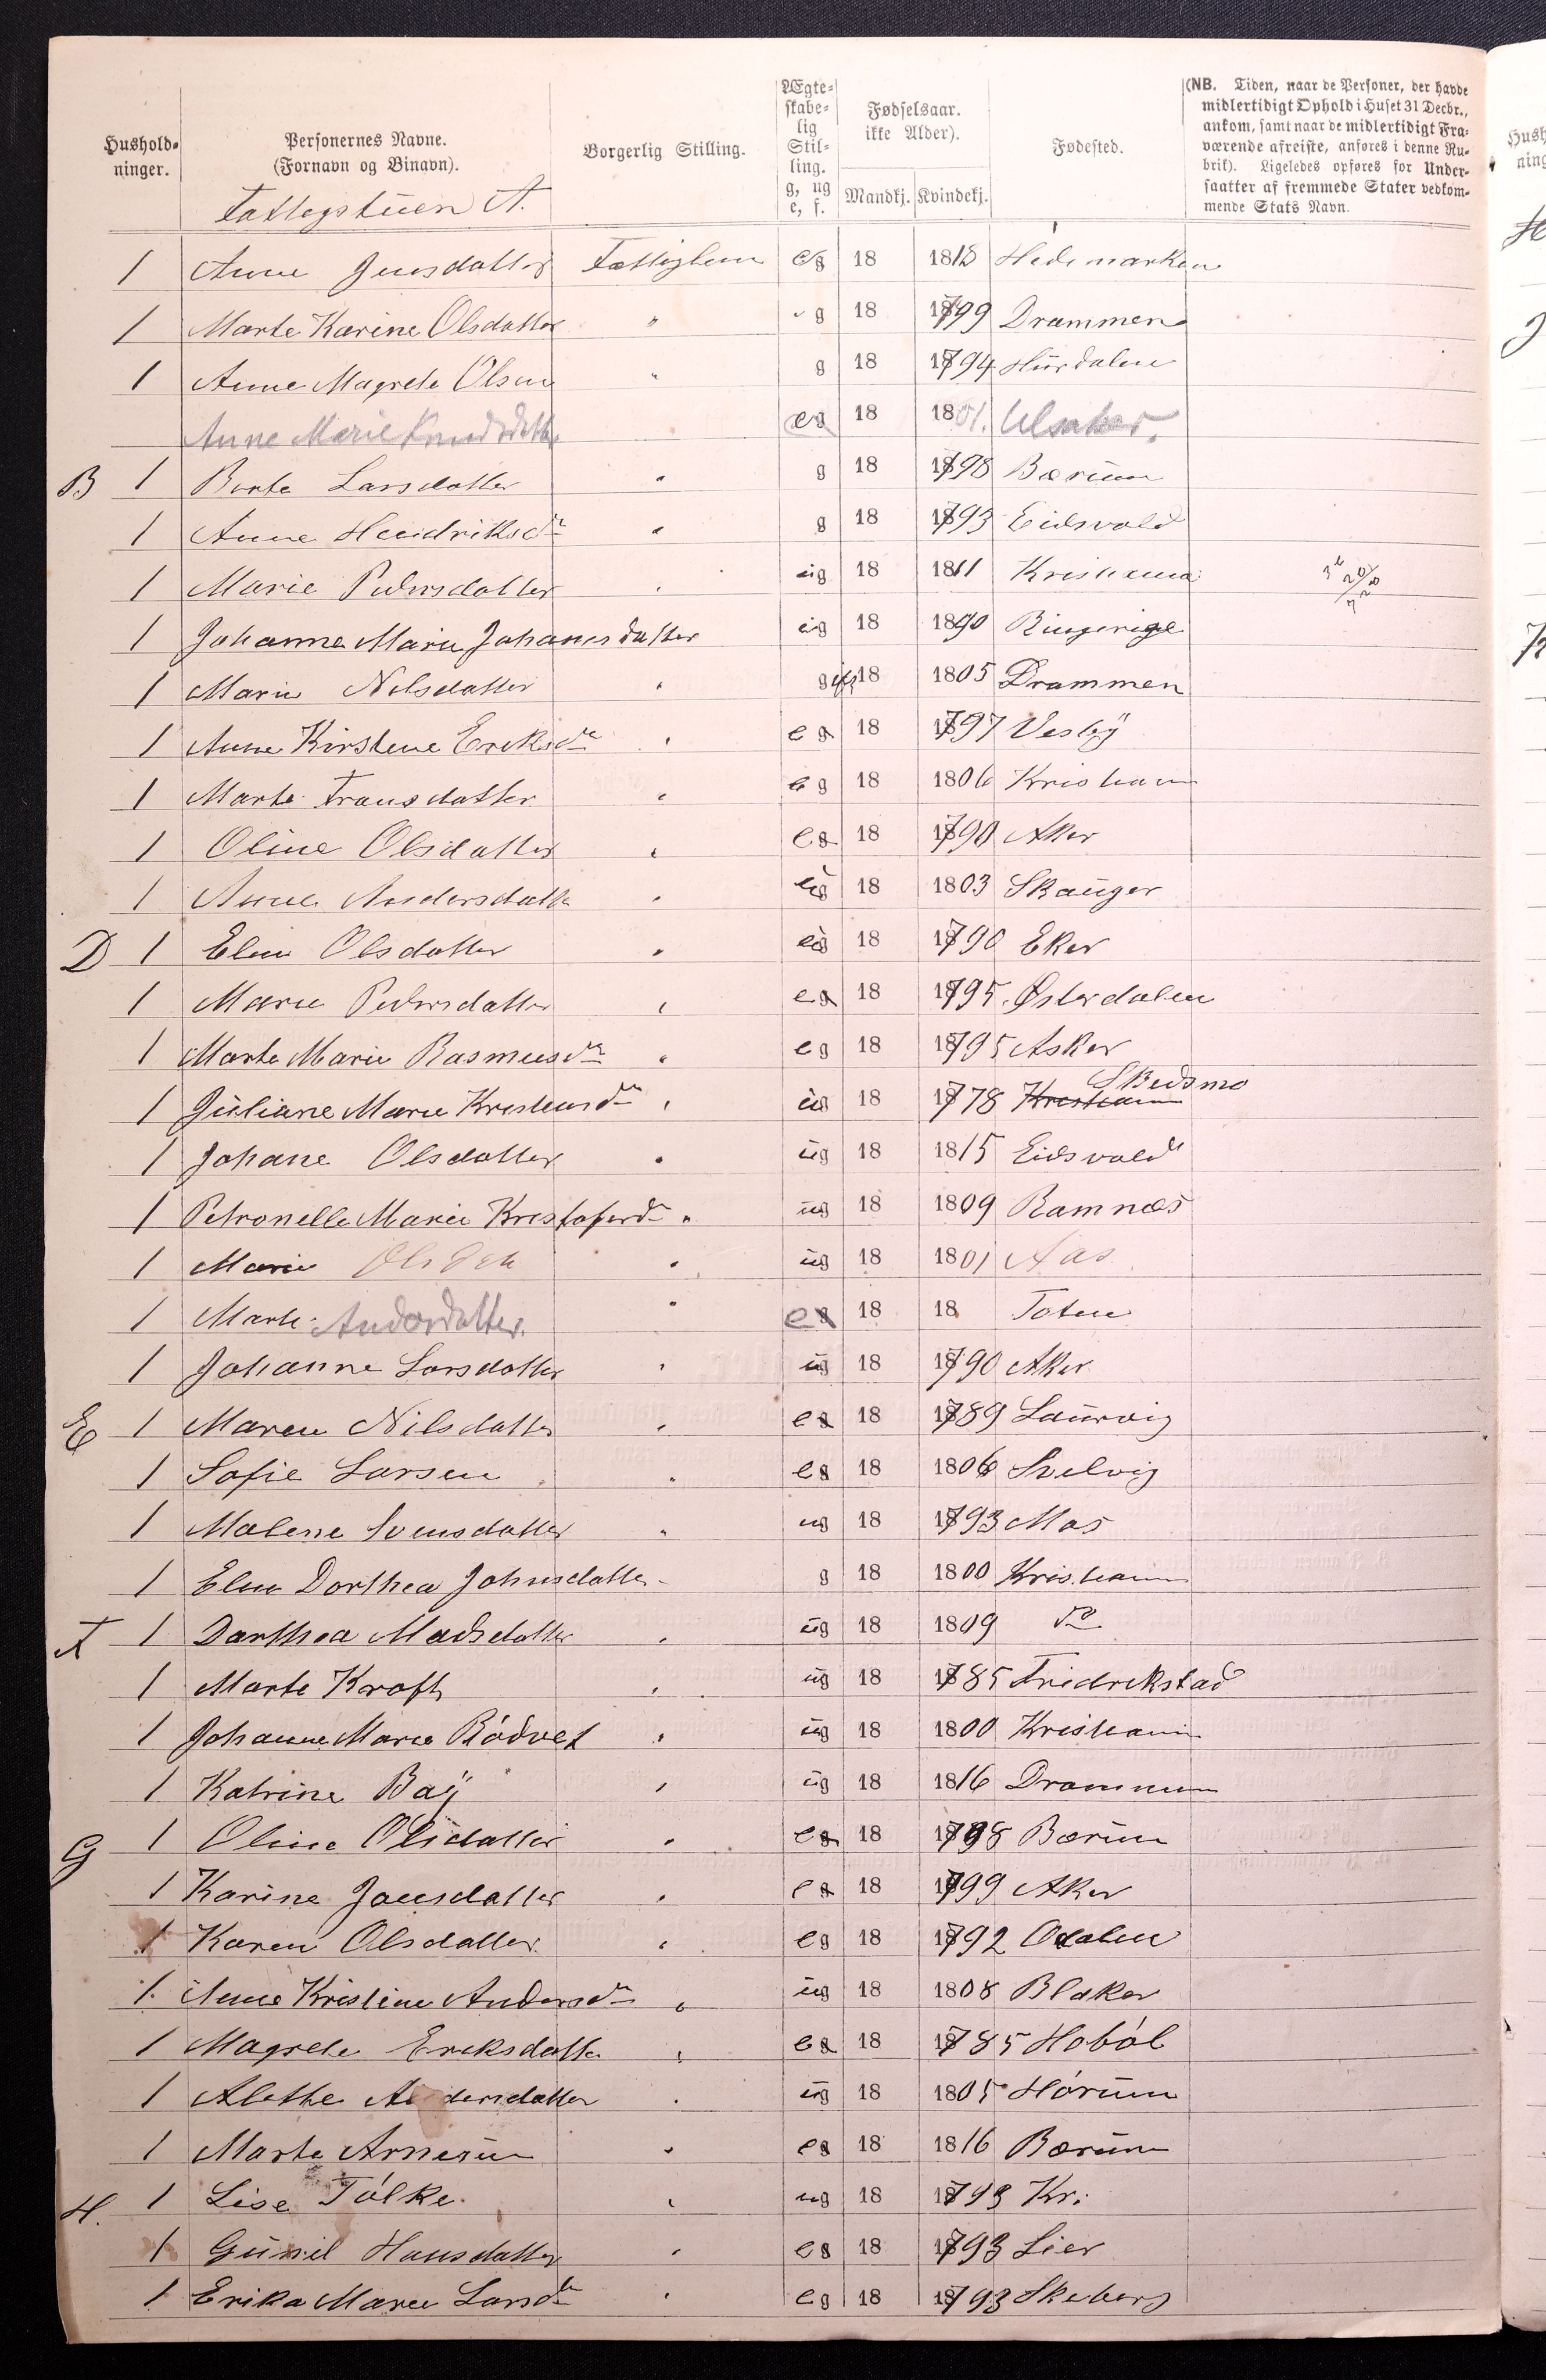 Hushold-ninger. Personernes Navne. (Fornavn og Binavn). Borgerlig Stilling. Ægte-skabe-lig Stil-ling. g, ug e, f. Fødselsaar. ikke Alder). Mandkj. Kvindekj. Fødested.
(NB. Tiden, naar de Personer, der havde
midlertidigt Ophold i Huset 31 Decbr.,
ankom, samt naar de midlertidigt Fra-
værende afreiste, anføres i denne Ru-
brik). Ligeledes opføres for Under-
saatter af fremmede Stater vedkom-
mende Stats Navn.
Fattigstuen A.
1 Anne Jensdatter Fattiglem eg 18 1818 Hedemarken
1 Marte Karine Olsdatter " g 18 1799 Drammen
1 Anne Magrete Olsen " g 18 1794 Hurdalen
Anne Marie Knudsdatter eg 18 1801.
B 1 Berte Larsdatter " g 18 1798 Bærum
1 Anne Hendriksdr " g 18 1793 Eidsvold
1 Marie Pedersdatter " ug 18 1811 Kristiania
1 Johanne Marie Johanesdatter ug 18 1790 Ringerige
1 Marie Nilsdatter " g 18 1805 Drammen
1 Anne Kirstene Ereksdr " e 18 1797 Vestby
1 Marte Fransdatter " eg 18 1806 Kristiania
1 Oline Olsdatter " e 18 1790 Aker
1 Anne Andersdatter " ug 18 1803 Skauger
D 1 Elen Olsdatter " ug 18 1790 Eker
1 Marie Pedersdatter " e 18 1795 Østerdalen
1 Marte Marie Rasmusdr " eg 18 1795 Asker
1 Juliane Marie Kristensdr " ug 18 1778 Kristiania Skedsmo
1 Johane Olsdatter " ug 18 1815 Eidsvold
1 Petronelle Marie Kristofersdr " ug 18 1809 Ramnæs
1 Marie Olsdtr " ug 18 1801 Aas
1 Marte Andersdatter. " e 18 18 Toten
1 Johanne Larsdatter " ug 18 1790 Aker
E 1 Maren Nilsdatter " e 18 1789 Laurvig
1 Sofie Larsen " e 18 1806 Svelvig
1 Malene Svensdatter " ug 18 1793 Mos
1 Elen Dorthea Johnsdatter g 18 1800 Kristiania
F 1 Darthea Madsdatter " ug 18 1809 do
1 Marte Kraft " ug 18 1785 Fredrikstad
1 Johanne Marie Rødvet " ug 18 1800 Kristiania
1 Katrine Bay " ug 18 1816 Drammen
G 1 Oline Olsdatter " e 18 1798 Bærum
1 Karine Jansdatter " e 18 1799 Aker
1 Karen Olsdatter " eg 18 1792 Odalen
1 Anne Kristine Andersdr " ug 18 1808 Blaker
1 Magrete Ereksdatter " e 18 1785 Hobøl
1 Alethe Andersdatter " ug 18 1805
1 Marte Arnesen " e 18 1816 Bærum
H. 1 Lise Tólke " ug 18 1793 Kr:
1 Gunnil Hansdatter " e 18 1793 Lier
1 Erika Marie Larsdr " eg 18 1793 Skeberg